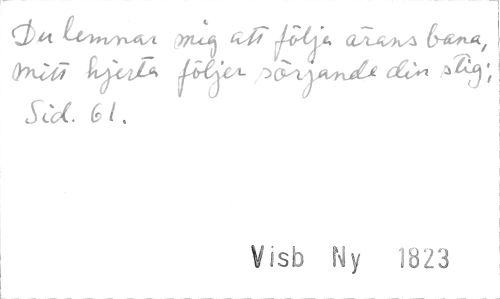 Du lemnar mig att följa ärans bana,
mitt hjerta följer sörjande din stig;
Sid. 61.
Visb Ny 1823